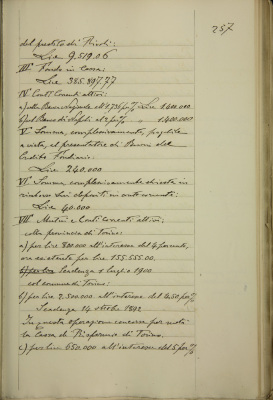 257
del prestito di Rivoli:
Lire 9.519.06
III. Fondo in cassa:
Lire 385.897.77
IV. Conti Correnti attivi:
a) colla Banca
b) col Banco di Napoli al 2 per %, " 1.400.000
V. Somma, complessivamente, pagabile
a vista, al presentatore di Buoni del
Credito Fondiario:
Lire 240.000
VI. Somma complessivamente
rimborso sui depositi in conto corrente:
Lire 40.000
VII. Mutui e Conti Correnti attivi;
colla provincia di Torino:
a) per lire 800.000 all'interesse del 4 per cento,
ora esistente per lire 155.555.00.
Scadenza 1 luglio 1900
col comune di Torino:
b) per lire 2.500.000 all'interesse del 4.50 per %
Scadenza 14 ottobre
In questa operazione concorse per metà
la Cassa di Risparmio di Torino.
c) per lire 650.000 all'interesse del 5 per %